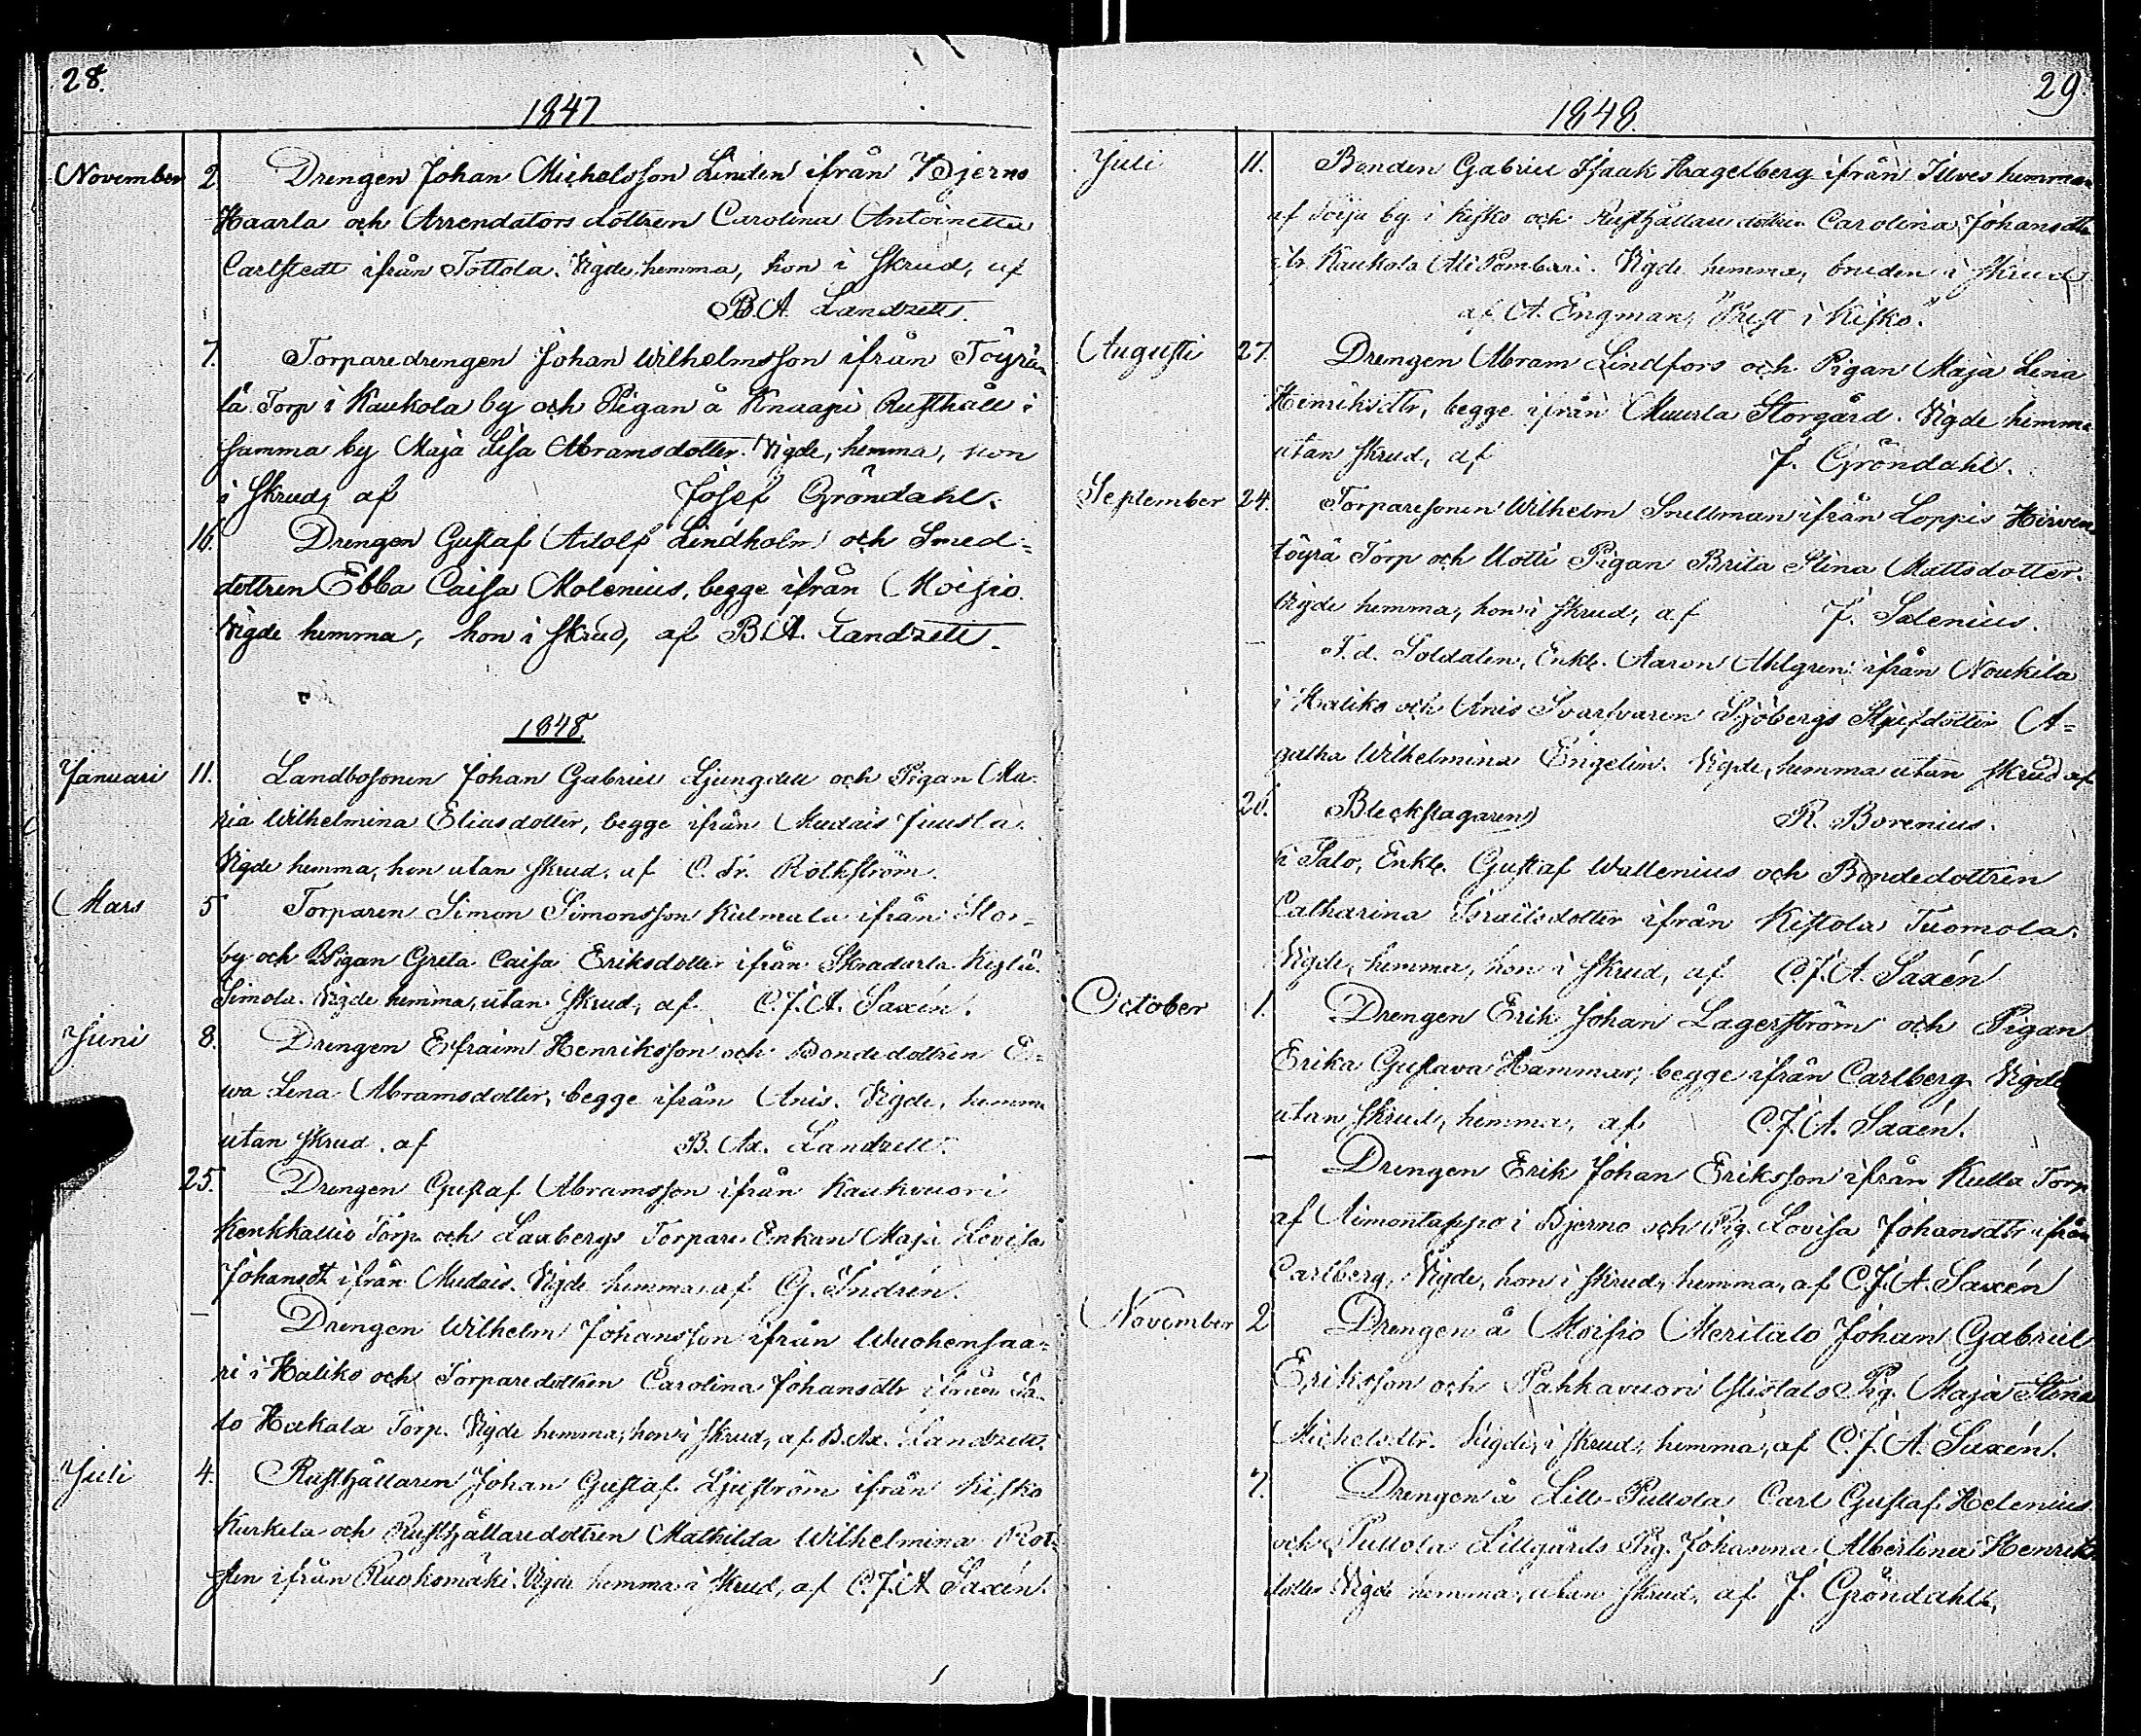 28.
1847
November 2 Drengen Johan Michelsson Lindén ifrån Bjerno
Haarla och Arrendators dottren Carolina Antoinetta
Carlstedt ifrån Tottola. Vigde, hemma, hon i skrud, af
B.A. Landzett.
7. Torparedrengen Johan Wilhelmsson ifrån Töyrä
lä Torp i Kaukola by och Pigan å Knaapi Rusthåll i
samma by Maja Lisa Abramsdotter. Vigde, hemma, hon
i skrud, af Josef Gröndahl.
16. Drengen Gustaf Adolf Lindholm och Smed-
dottren Ebba Caisa Molenius, begge ifrån Moisio.
Vigde hemma, hon i skrud, af B.A. Landzett.
1848.
Januari 11. Landbosonen Johan Gabriel Ljungdell och Pigan Ma-
ria Wilhelmina Eliasdotter, begge ifrån Mudais Juusla.
Vigde hemma, hon utan skrud, af C. Fr. Rothström.
Mars 5 Torparen Simon Simonsson Kulmala ifrån
by och Pigan Greta Caisa Eriksdotter ifrån
Simola. Vigde hemma, utan skrud, af C.J.A. Saxén.
Juni 8. Drengen Erfraim Henriksson och Bondedottren E-
wa Lena Abramsdotter, begge ifrån Anis. Vigde, hemma
utan skrud, af B. Ax. Landzett.
25. Drengen Gustaf Abramsson ifrån Kaukvuori
Kenkkallio Torp och Laxbergs Torpare Enkan Maja Lovisa
Johansdt ifrån Mudais. Vigde hemma, af G. Indrén.
– Drengen Wilhelm Johansson ifrån Wuohensaa-
ri i Haliko och Torparedottren Carolina Johansdtr ifrån Sa-
lo Hakala Torp. Vigde hemma, hon i skrud, af B. Ax. Landzett.
Juli 4. Rusthållaren Johan Gustaf Ljuström ifrån Kisko
Kurkela och Rusthållaredottren Mathilda Wilhelmina Rot-
sten ifrån Ruokomäki. Vigde hemma i skrud, af C.J.A Saxén.
29.
1848.
Juli 11. Bonden Gabriel Isaak Hagelberg ifrån Ilves hemman
af Toija by i Kisko och Rusthållare dottren Carolina Johansdtr
ifr. Kaukola Ali Pombari. Vigde hemma, bruden i skrud
af A. Engman, Prest i Kisko.
Augusti 27. Drengen Abram Lindfors och Pigan Maja Lena
Henriksdtr, begge ifrån Muurla Storgård. Vigde hemma
utan skrud, af J. Gröndahl.
September 24. Torparesonen Wilhelm Snellman ifrån Loppis Hirven
töyrä Torp och Uotti Pigan Brita Stina Mattsdotter.
Vigde hemma, hon i skrud, af J. Salenius.
– F. d. Soldaten, Enkl. Aaron Ahlgren ifrån Noukila
i Haliko och Anis Svarfvaren Sjöbergs Stjufdotter A-
gatha Wilhelmina Engelin. Vigde, hemma utan skrud af
26. Bleckslagaren R. Borenius.
i Salo, Enkl. Gustaf Wallenius och Bondedottren
Catharina Israelsdotter ifrån Kistola Tuomola.
Vigde, hemma, hon i skrud, af C.J.A. Saxén
October 1. Drengen Erik Johan Lagerström och Pigan
Erika Gustava Hammar, begge ifrån Carlberg. Vigde
utan skrud, hemma, af C.J.A. Saxén.
– Drengen Erik Johan Eriksson ifrån Kulla Torp
af Aimontappo i Bjerno och Pig. Lovisa Johansdtr ifrån
Carlberg. Vigde, hon i skrud, hemma, af C.J.A. Saxén
November 2 Drengen å Moisio Meritalo Johan Gabriel
Eriksson och Pahkavuori Ylistalo Pig. Maja Stina
Michelsdtr. Vigde, i skrud, hemma, af C.J.A. Saxén.
7. Drengen å Lill-Pullola Carl Gustaf Helenius
och Pullola Lillgårds Pig. Johanna Albertina Henriks
dotter Vigde hemma, utan skrud, af J. Gröndahl.